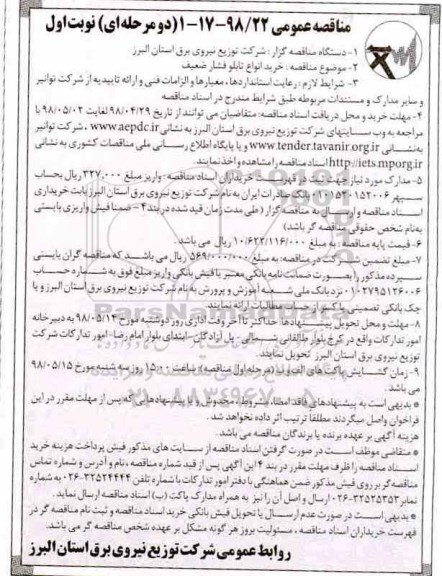 مناقصه عمومی ۹۸/۲۲-۱۷-۱ (دو مرحله ای) نوبت اول
۱- دستگاه مناقصه گزار : شرکت توزیع نیروی برق استان البرز
۲- موضوع مناقصه : خرید انواع تابلو فشار ضعیف
۳- شرایط لازم : رعایت استانداردها، معیارها و الزامات فنی و ارائه تاییدیه از شرکت توانیر
و سایر مدارک و مستندات مربوطه طبق شرایط مندرج در اسناد مناقصه
۴- مهلت خرید و محل دریافت اسناد مناقصه: متقاضیان می توانند از تاریخ ۹۸/۰۴/۲۹ لغایت ۹۸/۰۵/۰۲ با
مراجعه به وب سایتهای شرکت توزیع نیروی برق استان البرز به نشانی www.aepdc.ir ، شرکت توانیر
به نشانی www.tender.tavanir.org.ir و یا پایگاه اطلاع رسانی ملی مناقصات کشوری به نشانی
http://iets.mporg.ir اسناد مناقصه را مشاهده و اخذ نمایند.
۵- مدارک مورد نیاز جهت درج در فهرست خریداران اسناد مناقصه : واریز مبلغ ۳۲۷,۰۰۰ ریال بحساب
سپهر بانک صادرات ایران به نام شرکت توزیع نیروی برق استان البرز بابت خریداری
اسناد مناقصه و ارسال به مناقصه گزار (طی مدت زمان قید شده در بند ۴ - ضمنا فیش واریزی بایستی
به نام شخص حقوقی مناقصه گر باشد)
۶- قیمت پایه مناقصه : به مبلغ ۱۰/۶۲۲/۱۱۶/۰۰۰ ریال می باشد .
۷- مبلغ تضمین شرکت در مناقصه: به مبلغ ۵۶۹/۰۰۰/۰۰۰ ریال می باشد که مناقصه گران بایستی
سپرده مذکور را بصورت ضمانت نامه بانکی معتبر یا فیش بانکی واریز مبلغ فوق به شماره حساب
۰۱۰۲۷۹۵۱۲۶۰۰۶ نزد بانک ملی شعبه آموزش و پرورش به نام شرکت توزیع نیروی برق استان البرز و یا
چک بانکی تضمینی یا کسر از محل مطالبات ارائه نمایند.
۸- مهلت و محل تحویل پیشنهادها: حداکثر تا آخر وقت اداری روز دوشنبه مورخ ۹۸/۰۵/۱۴ به دبیرخانه
امور تدارکات واقع در کرج بلوار طالقانی شمالی - پل آزادگان - ابتدای بلوار امام رضا - امور تدارکات شرکت
توزیع نیروی برق استان البرز تحویل نمایند.
۹- زمان گشایش پاکت های الف و ب (مرحله اول مناقصه) : ساعت ۱۵:۰۰ روز سه شنبه مورخ ۹۸/۰۵/۱۵
می باشد.
* بدیهی است به پیشنهادهای فاقد امضاء، مشروط، مخدوش و یا پیشنهادهایی که پس از مهلت مقرر در این
فراخوان واصل میگردند مطلقاً ترتیب اثر داده نخواهد شد.
هزینه آگهی بر عهده برنده یا برندگان مناقصه می باشد.
* متقاضی موظف است در صورت گرفتن اسناد مناقصه از سایت های مذکور فیش پرداخت هزینه خرید
اسناد مناقصه را ظرف مهلت مقرر در بند ۴ این آگهی پس از قید شماره مناقصه، نام و آدرس و شماره تماس
مناقصه گر بر روی فیش مذکور ضمن هماهنگی با دفتر امور تدارکات با شماره تلفن ۳۲۵۲۴۴۴۴-۰۲۶ به شماره
نمابر ۳۲۵۲۵۳۵۳-۰۲۶ ارسال و اصل آن را نیز به همراه مدارک پاکت (ب) اسناد مناقصه ارسال نماید.
* بدیهی است در صورت عدم ارسال یا تحویل فیش بانکی خرید اسناد مناقصه و ثبت نام مناقصه گر در
فهرست خریداران اسناد مناقصه ، مسئولیت بروز هر گونه مشکل بر عهده شخص مناقصه گر می باشد.
روابط عمومی شرکت توزیع نیروی برق استان البرز
ParsNamadData
۰۲۱-۸۸۳۴۹۶۷۰-۵